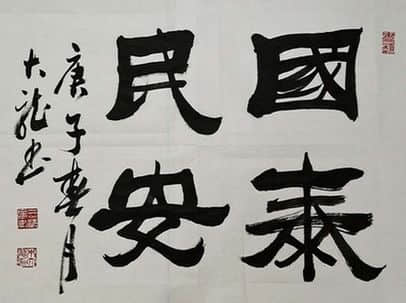 國泰
民安
庚子春月
大龍书